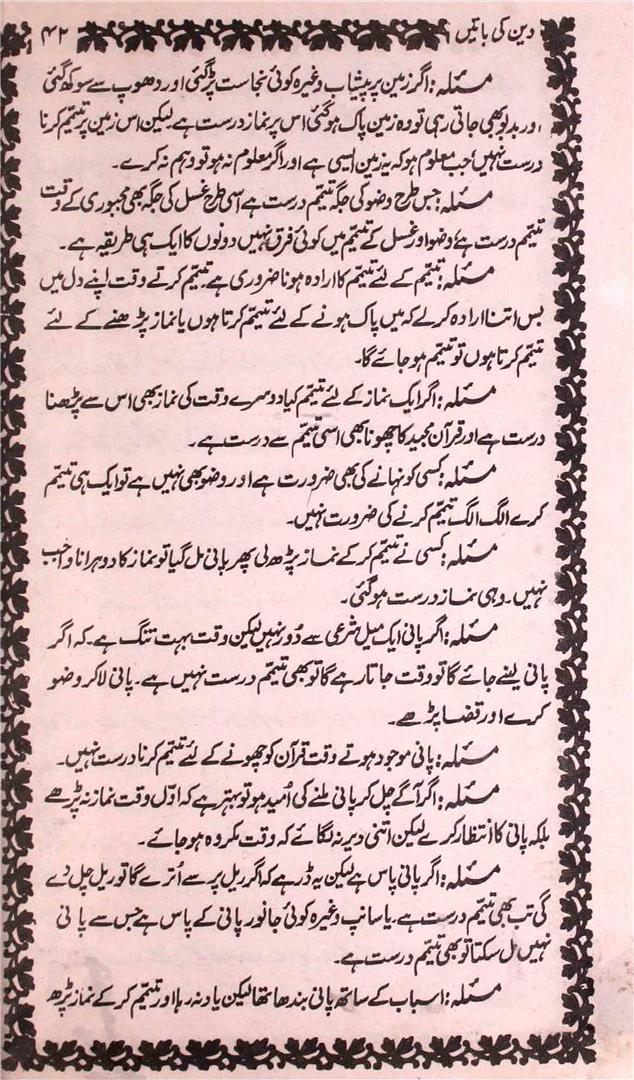 دین کی باتیں ۴۲
مسئلہ: اگر زمین پر پیشاب وغیرہ کوئی نجاست پڑ گئی اور دھوپ سے سوکھ گئی
اور بدبو بھی جاتی رہی تو وہ زمین پاک ہو گئی اس پر نماز درست ہے۔ لیکن اس زمین پر تیمّم کرنا
درست نہیں، جب معلوم ہو کہ یہ زمین ایسی ہے اور اگر معلوم نہ ہو تو وہم نہ کرے۔
مسئلہ: جس طرح وضو کی جگہ تیمّم درست ہے اسی طرح غسل کی جگہ بھی مجبوری کے وقت
تیمّم درست ہے، وضو اور غسل کے تیمّم میں کوئی فرق نہیں دونوں کا ایک ہی طریقہ ہے۔
مسئلہ: تیمّم کے لئے تیمّم کا ارادہ ہونا ضروری ہے۔ تیمّم کرتے وقت اپنے دل میں
بس اتنا ارادہ کر لے کہ میں پاک ہونے کے لئے تیمّم کرتا ہوں یا نماز پڑھنے کے لئے
تیمّم کرتا ہوں تو تیمّم ہو جائے گا۔
مسئلہ: اگر ایک نماز کے لئے تیمّم کیا دوسرے وقت کی نماز بھی اس سے پڑھنا
درست ہے اور قرآن مجید کا چھونا بھی اسی تیمّم سے درست ہے۔
مسئلہ: کسی کو نہانے کی بھی ضرورت ہے اور وضو بھی نہیں ہے تو ایک ہی تیمّم
کرے الگ الگ تیمّم کرنے کی ضرورت نہیں۔
مسئلہ: کسی نے تیمّم کر کے نماز پڑھ لی پھر پانی مل گیا تو نماز کا دوہرانا واجب
نہیں۔ وہی نماز درست ہو گئی۔
مسئلہ: اگر پانی ایک میل شرعی سے دُور نہیں لیکن وقت بہت تنگ ہے۔ کہ اگر
پانی لینے جائے گا تو وقت جاتا رہے گا تو بھی تیمّم درست نہیں ہے۔ پانی لاکر وضو
کرے اور قضا پڑھے۔
مسئلہ: پانی موجود ہوتے وقت قرآن کو چھونے کے لئے تیمّم کرنا درست نہیں۔
مسئلہ: اگر آگے چل کر پانی ملنے کی اُمید ہو تو بہتر ہے کہ اوّل وقت نماز نہ پڑھے
بلکہ پانی کا انتظار کرے لیکن اتنی دیر نہ لگائے کہ وقت مکروہ ہو جائے۔
مسئلہ: اگر پانی پاس ہے لیکن یہ ڈر ہے کہ اگر ریل پر سے اُترے گا تو ریل چل دے
گی تب بھی تیمّم درست ہے۔ یا سانپ وغیرہ کوئی جانور پانی کے پاس ہے جس سے پانی
نہیں مل سکتا تو بھی تیمّم درست ہے۔
مسئلہ: اسباب کے ساتھ پانی بندھا تھا لیکن یاد نہ رہا اور تیمّم کر کے نماز پڑھ